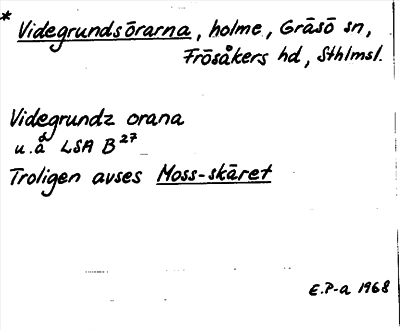 * Videgrundsörarna, holme, Gräsö sn,
Frösåkers hd, Sthlmsl.
Videgrundz orana
u.å LSA B 27
Troligen avses Moss-skäret
E.P-a 1968